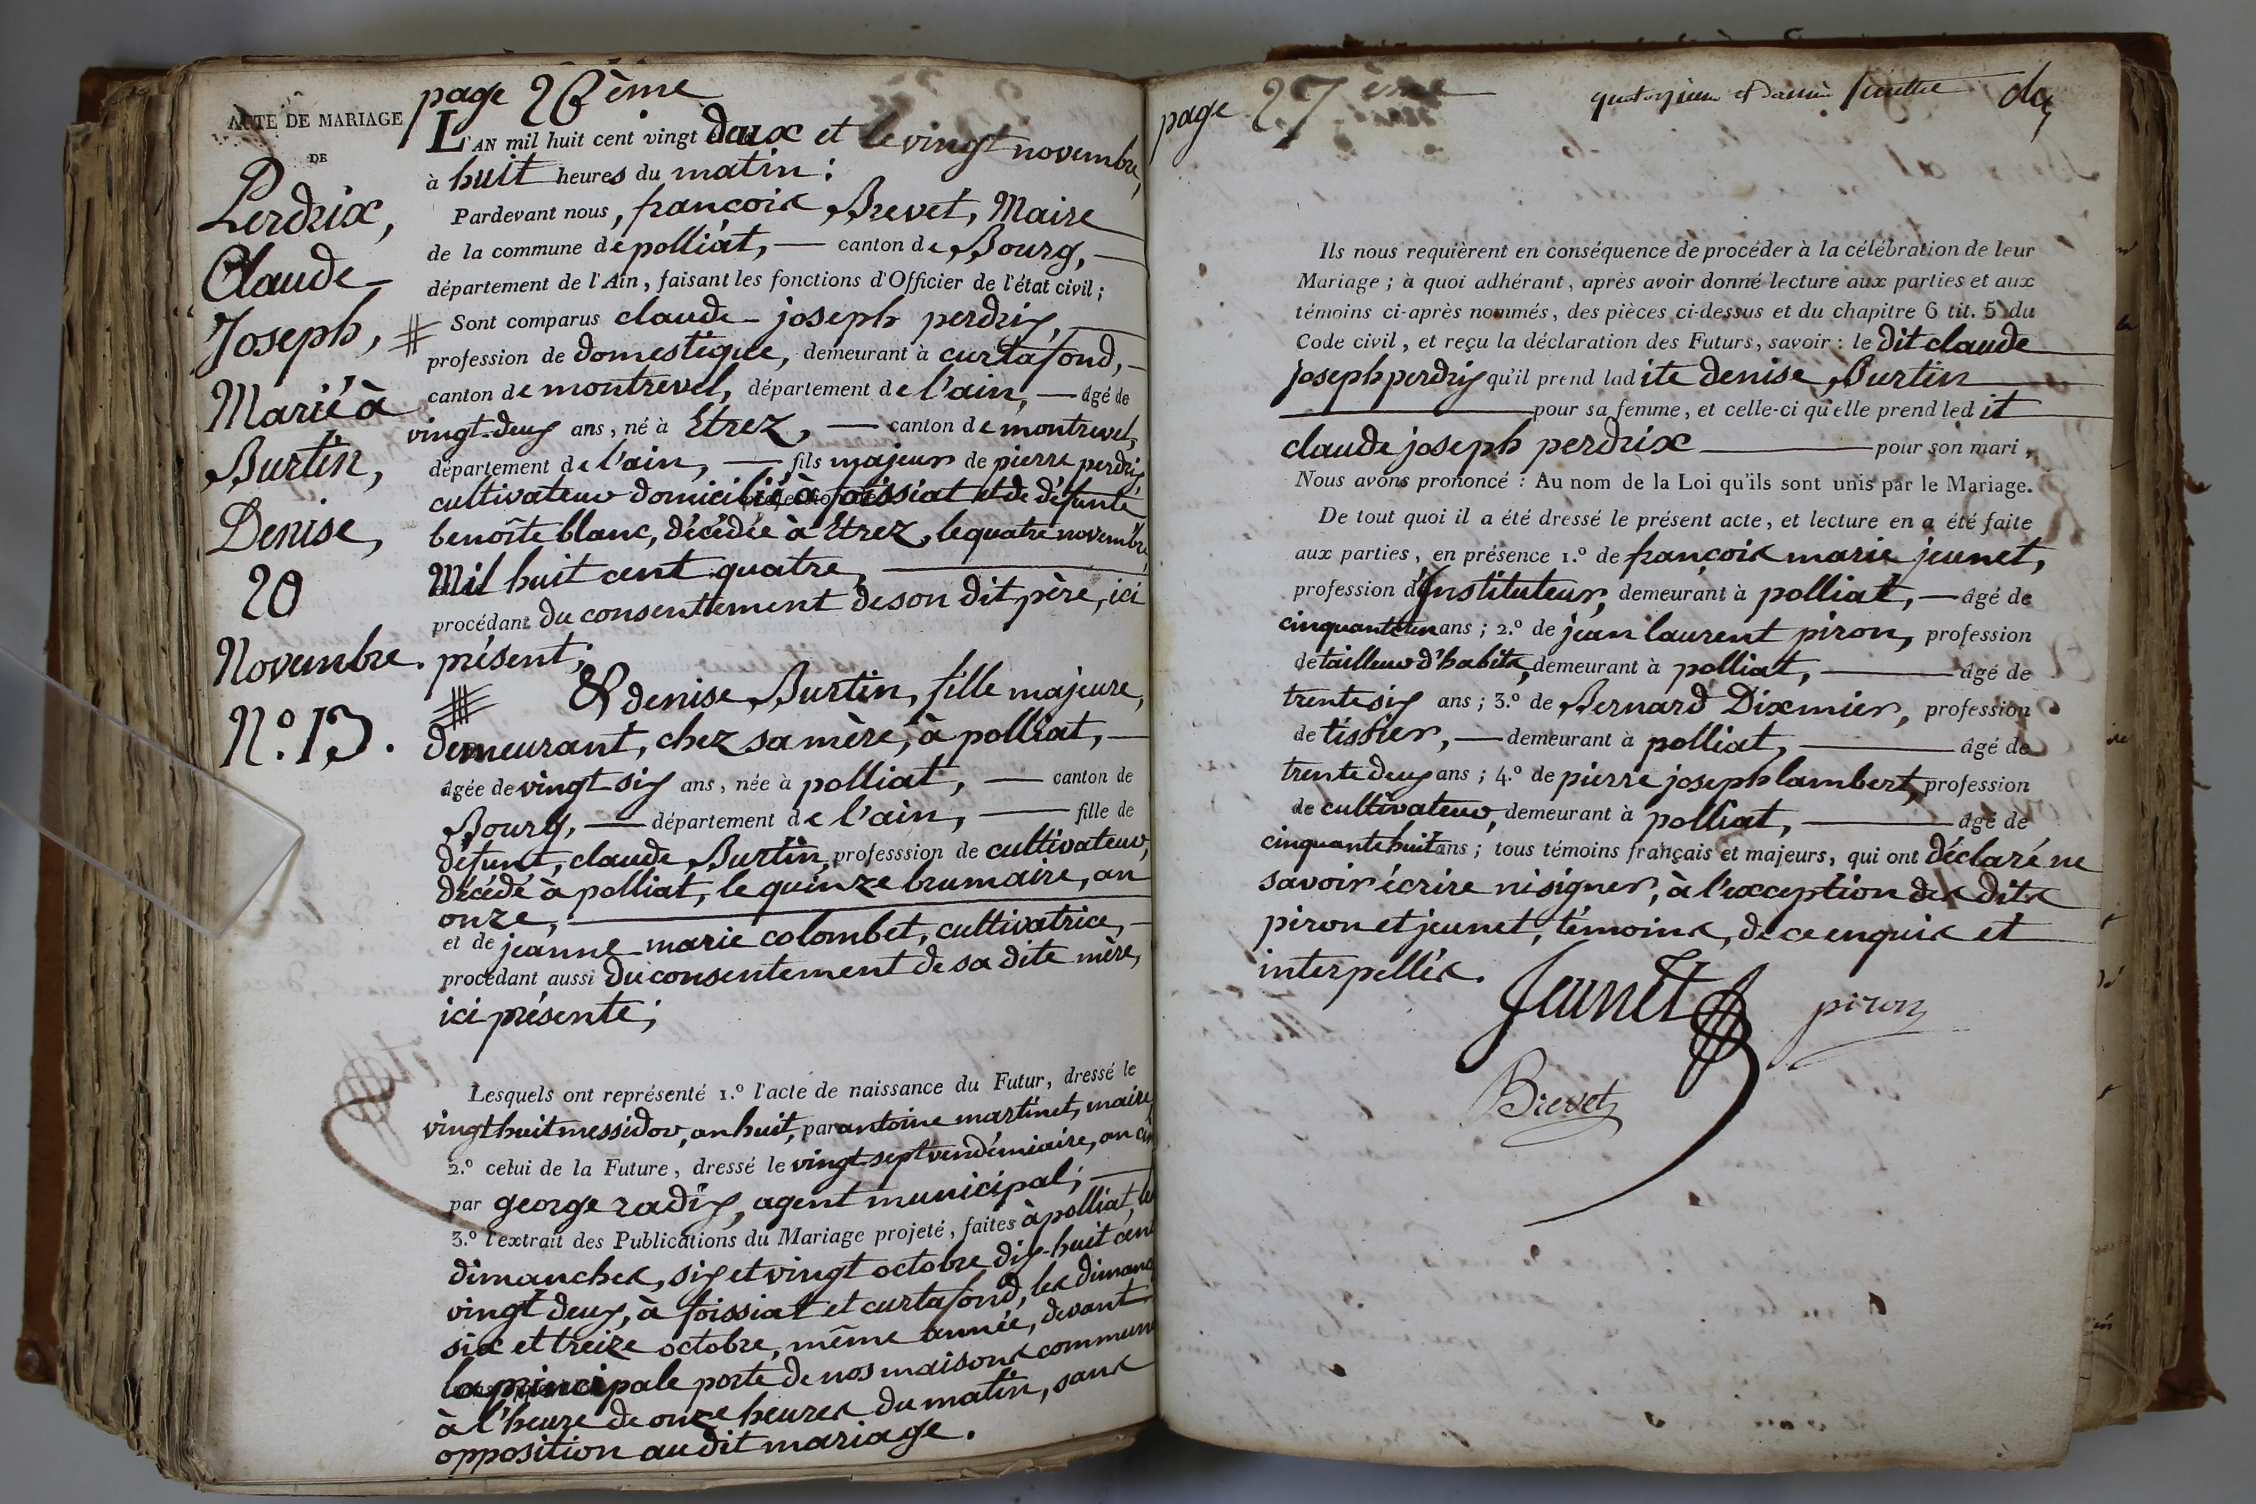 page 26ème
ACTE DE MARIAGE
DE
Perdrix,
Claude
Joseph,
Marié à
Burtin,
Denise,
20
Novembre.
N.º 13.
L'AN mil huit cent vingt deux et le vingt novembre,
à huit heures du matin:
Pardevant nous, françois Brevet, Maire
de la commune de polliat, canton de Bourg,
département de l'Ain, faisant les fonctions d'Officier de l'état civil;
Sont comparus claude-joseph perdrix,
profession de domestique, demeurant à curtafond,
canton de montrevel, département de l'ain, âgé de
vingt-deux ans, né à Etrez, canton de montrevel,
département de l'ain, fils majeur de pierre perdrix,
cultivateur domicilié à foissiat et de défunte
benoîte blanc, décédée à Etrez, le quatre novembre
Mil huit cent quatre,
procédant du consentement de son dit père, ici
présent;
& denise Burtin, fille majeure,
demeurant, chez sa mère, à polliat,
âgée de vingt six ans, née à polliat, canton de
Bourg, département de l'ain, fille de
défunt, claude Burtin, professsion de cultivateur,
décédé à polliat, le quinze brumaire, an
onze,
et de jeanne marie colombet, cultivatrice,
procédant aussi du consentement de sa dite mère,
ici présente;
Lesquels ont représenté 1.º l'acte de naissance du Futur, dressé le
vingt huit messidor, an huit, par antoine martinet, maire
2.º celui de la Future, dressé le vingt-sept vendémiaire, an cin
par george radix, agent municipal;
3.º l'extrait des Publications du Mariage projeté, faites à polliat, les
dimanches, six et vingt octobre dix-huit cent
vingt deux, à foissiat et curtafond, les dimanc
six et treize octobre, même année, devant
la principale porte de nos maisons commune
à l'heure de onze heures du matin, sans
opposition audit mariage.
page 27ème
Ils nous requièrent en conséquence de procéder à la célébration de leur
Mariage; à quoi adhérant, après avoir donné lecture aux parties et aux
témoins ci-après nommés, des pièces ci-dessus et du chapitre 6 tit. 5 du
Code civil, et reçu la déclaration des Futurs, savoir: le dit claude
joseph perdrix qu'il prend ladite denise Burtin
pour sa femme, et celle-ci qu'elle prend ledit
claude joseph perdrix pour son mari,
Nous avons prononcé: Au nom de la Loi qu'ils sont unis par le Mariage.
De tout quoi il a été dressé le présent acte, et lecture en a été faite
aux parties, en présence 1.º de françois marie jeunet,
profession d'Instituteur, demeurant à polliat, âgé de
cinquante un ans; 2.º de jean laurent piron, profession
de tailleur d'habits, demeurant à polliat, âgé de
trente six ans; 3.º de Bernard Dixmier, profession
de tissier, demeurant à polliat, âgé de
trente deux ans; 4.º de pierre joseph lambert, profession
de cultivateur, demeurant à polliat, âgé de
cinquante huit ans; tous témoins français et majeurs, qui ont déclaré ne
savoir écrire ni signer, à l'exception des dits
piron et jeunet, témoins, de ce enquis et
interpellés.
Jeunet
piron
Brevet